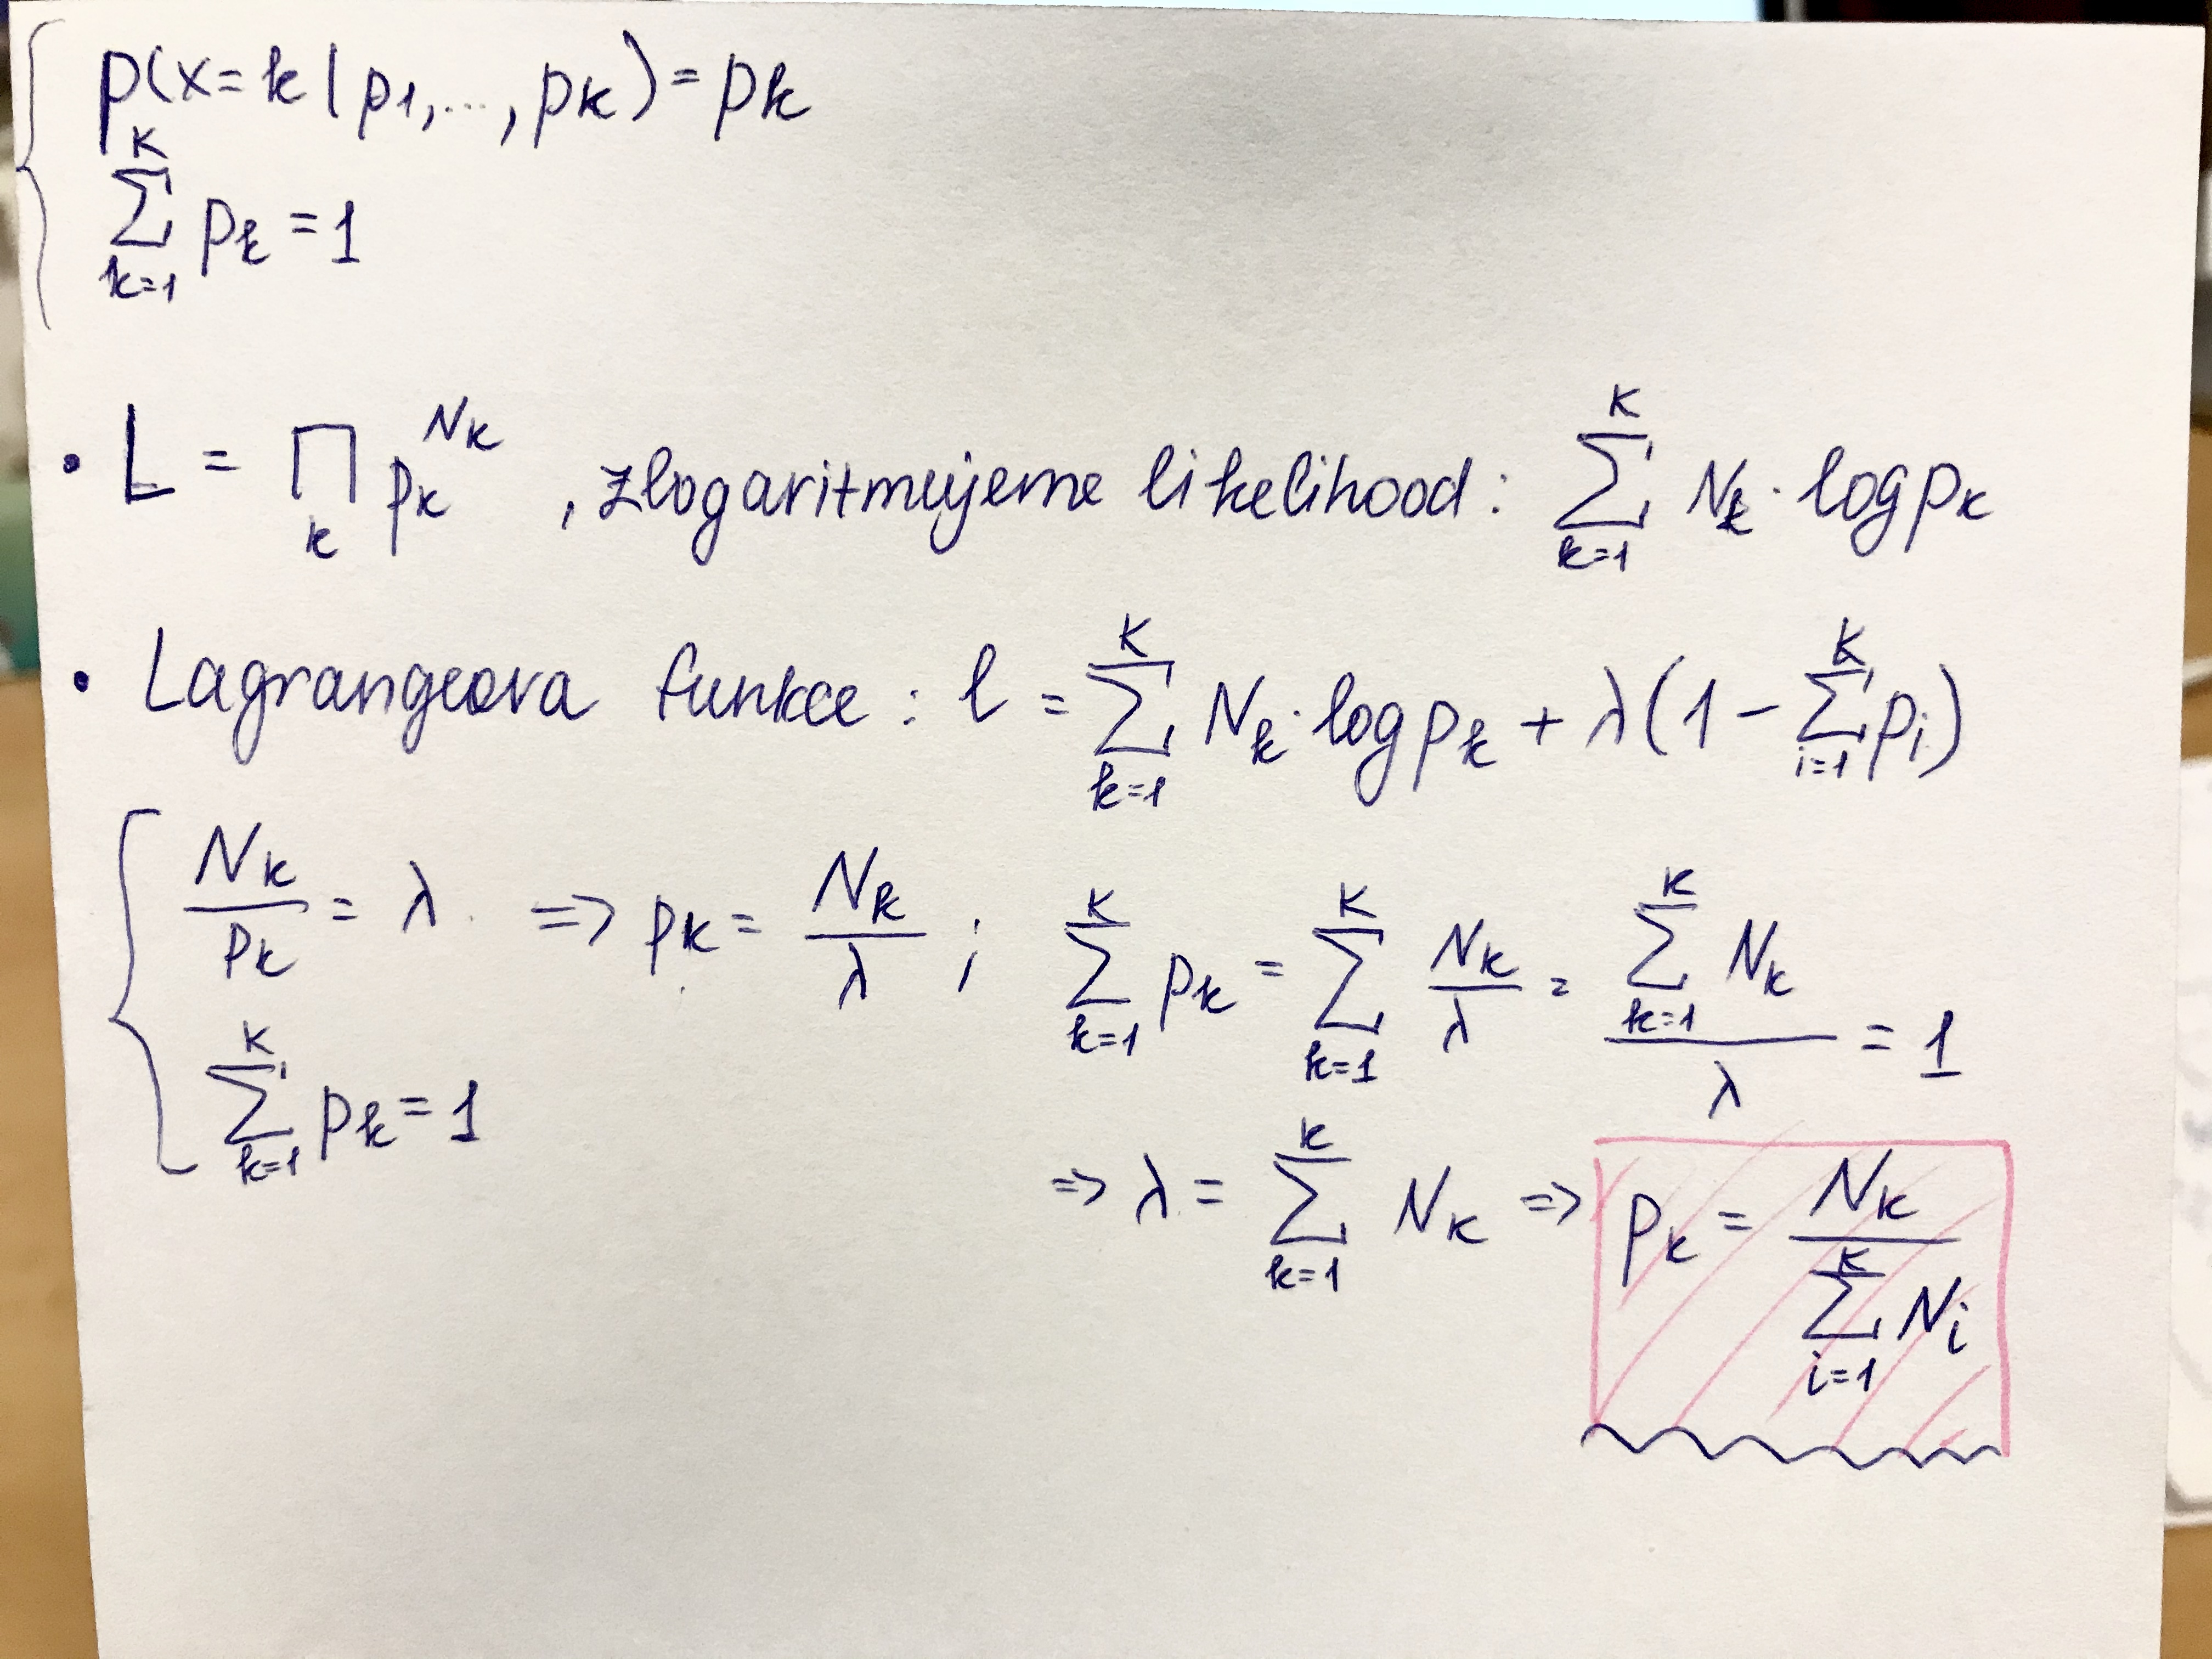 p(x=k | p1,..., pK) = pk
∑_{k=1}^{K} pk = 1
• L = ∏_k pk^{Nk}, zlogaritmujeme likelihood: ∑_{k=1}^{K} Nk · log pk
• Lagrangeova funkce: l = ∑_{k=1}^{K} Nk · log pk + λ(1 − ∑_{i=1}^{K} pi)
Nk/pk = λ. => pk = Nk/λ ; ∑_{k=1}^{K} pk = ∑_{k=1}^{K} Nk/λ = (∑_{k=1}^{K} Nk)/λ = 1
∑_{k=1}^{K} pk = 1
=> λ = ∑_{k=1}^{K} Nk => pk = Nk/(∑_{i=1}^{K} Ni)